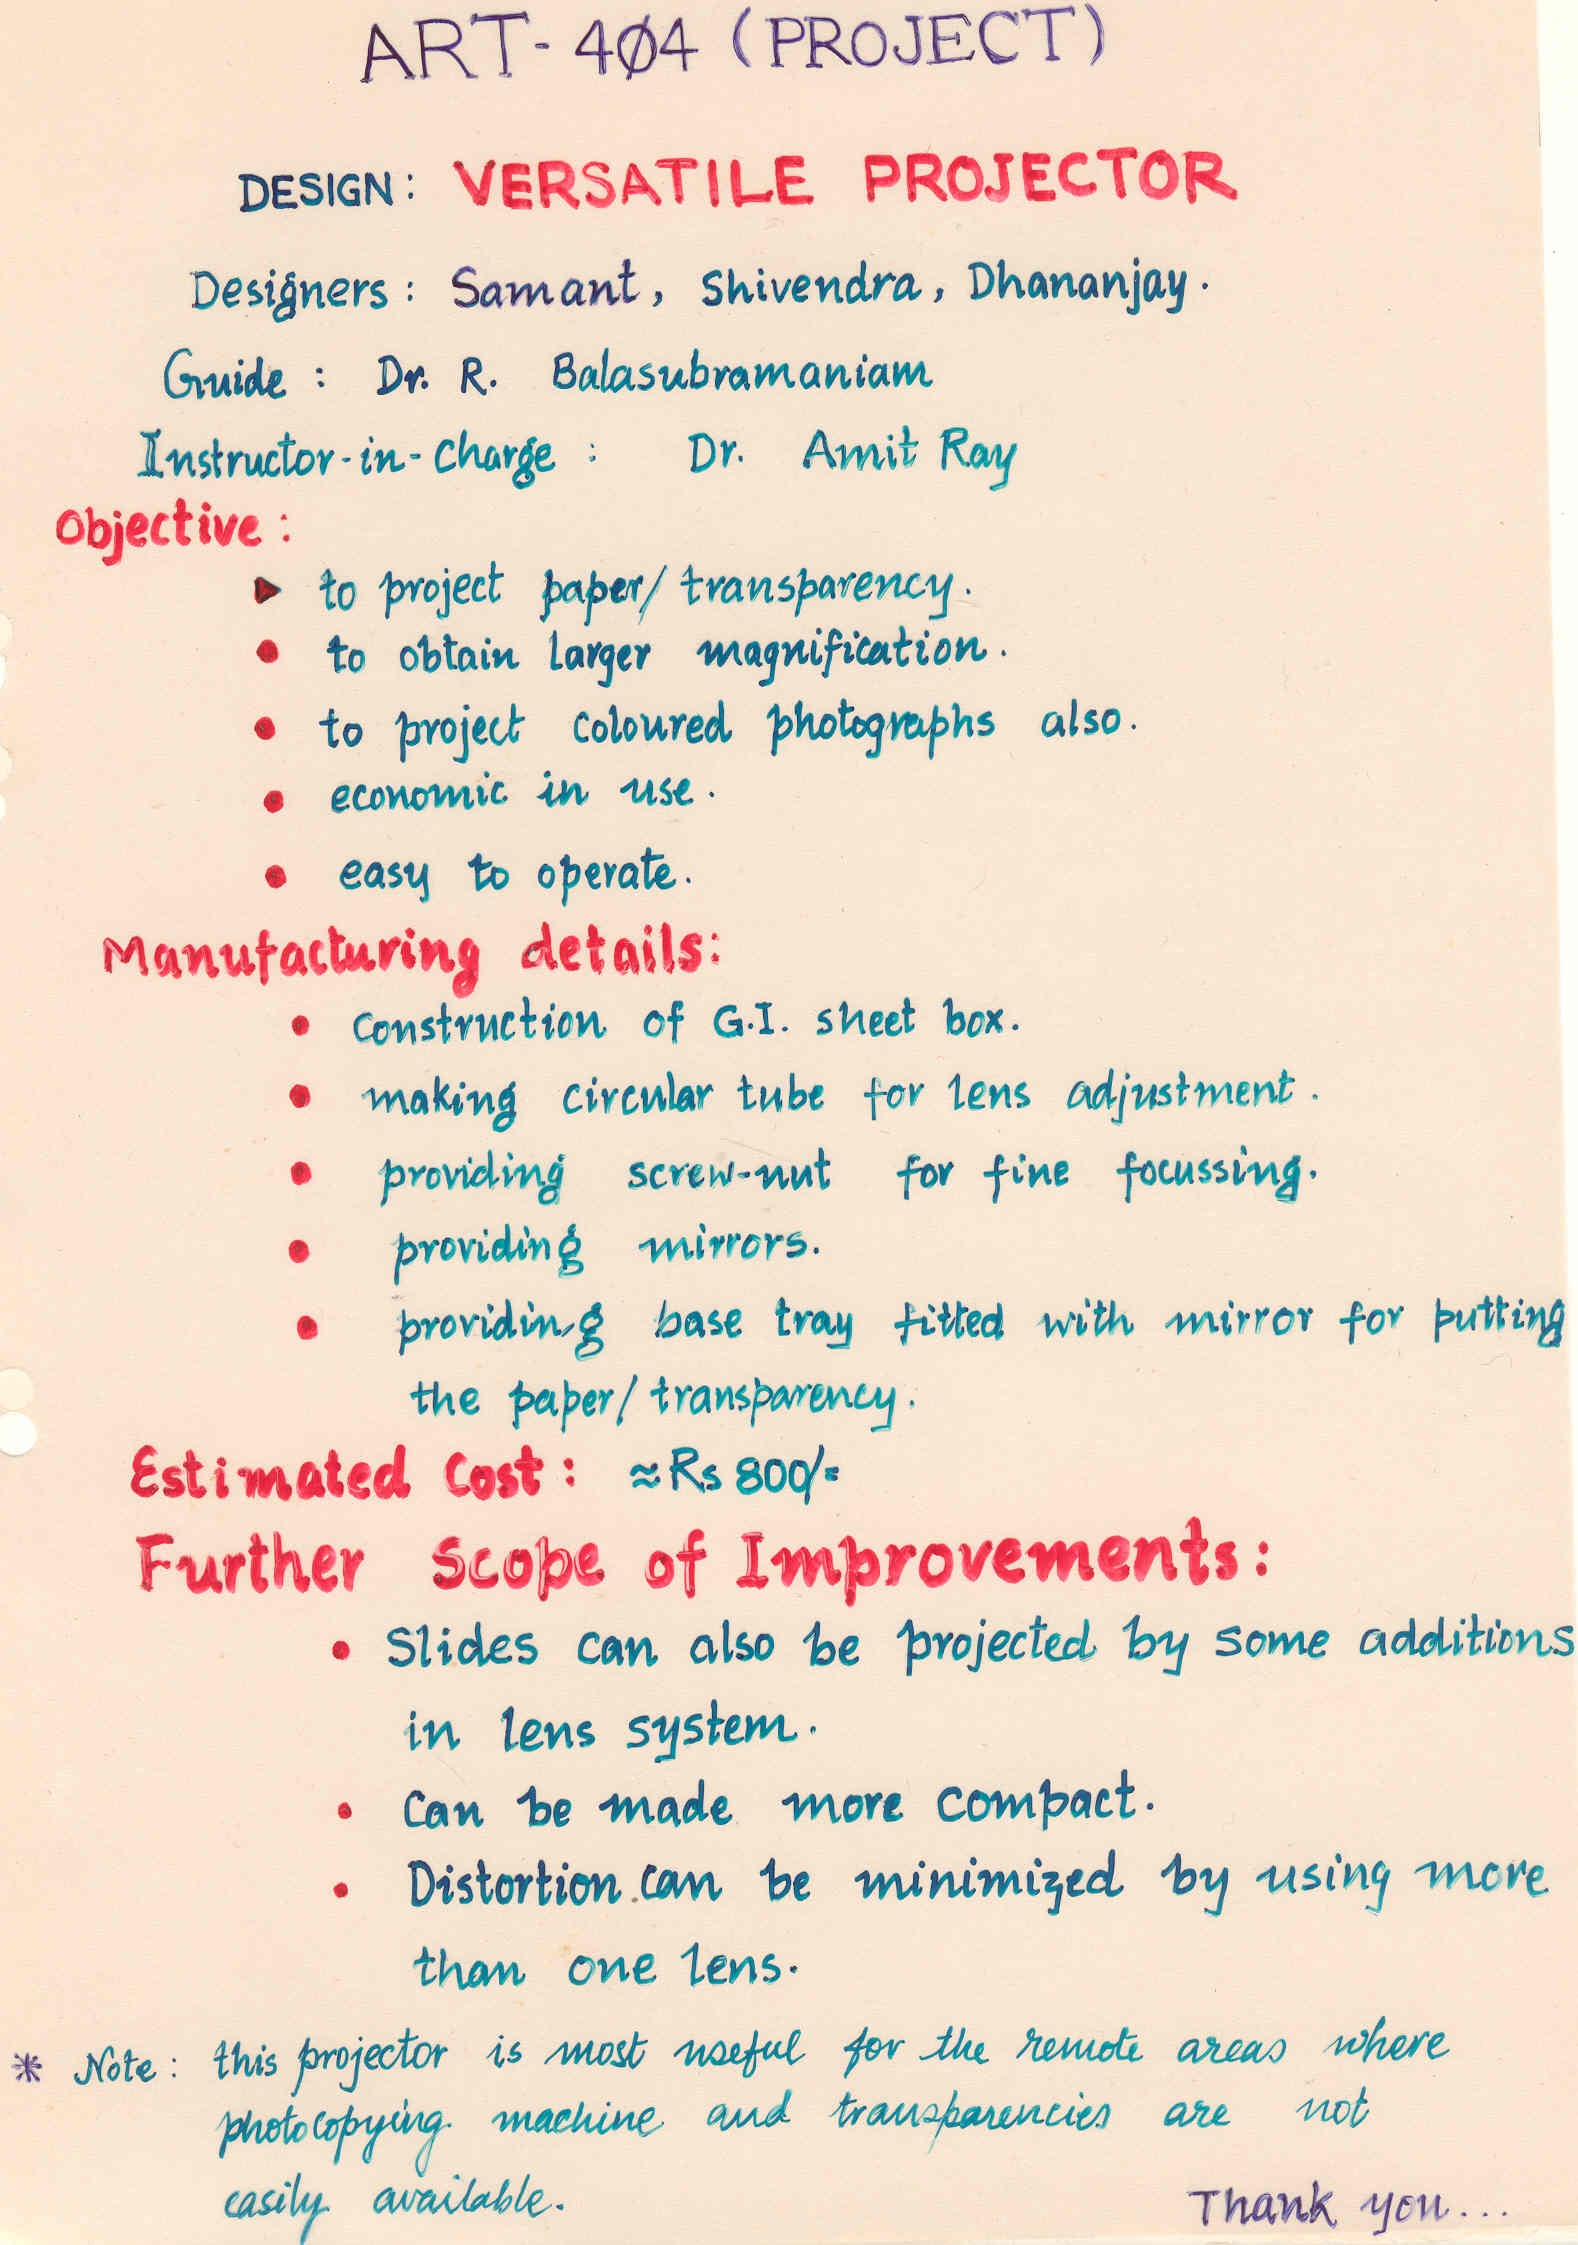 ART-404 (PROJECT)
DESIGN: VERSATILE PROJECTOR
Designers: Samant, Shivendra, Dhananjay.
Guide: Dr. R. Balasubramaniam
Instructor-in-Charge: Dr. Amit Ray
Objective:
▸ to project paper/transparency.
• to obtain larger magnification.
• to project coloured photographs also.
• economic in use.
• easy to operate.
Manufacturing details:
• construction of G.I. sheet box.
• making circular tube for lens adjustment.
• providing screw-nut for fine focussing.
• providing mirrors.
• providing base tray fitted with mirror for putting
the paper/transparency.
Estimated Cost: ≈Rs 800/=
Further Scope of Improvements:
• Slides can also be projected by some additions
in lens system.
• Can be made more compact.
• Distortion can be minimized by using more
than one lens.
* Note: this projector is most useful for the remote areas where
photocopying machine and transparencies are not
easily available.
Thank you...